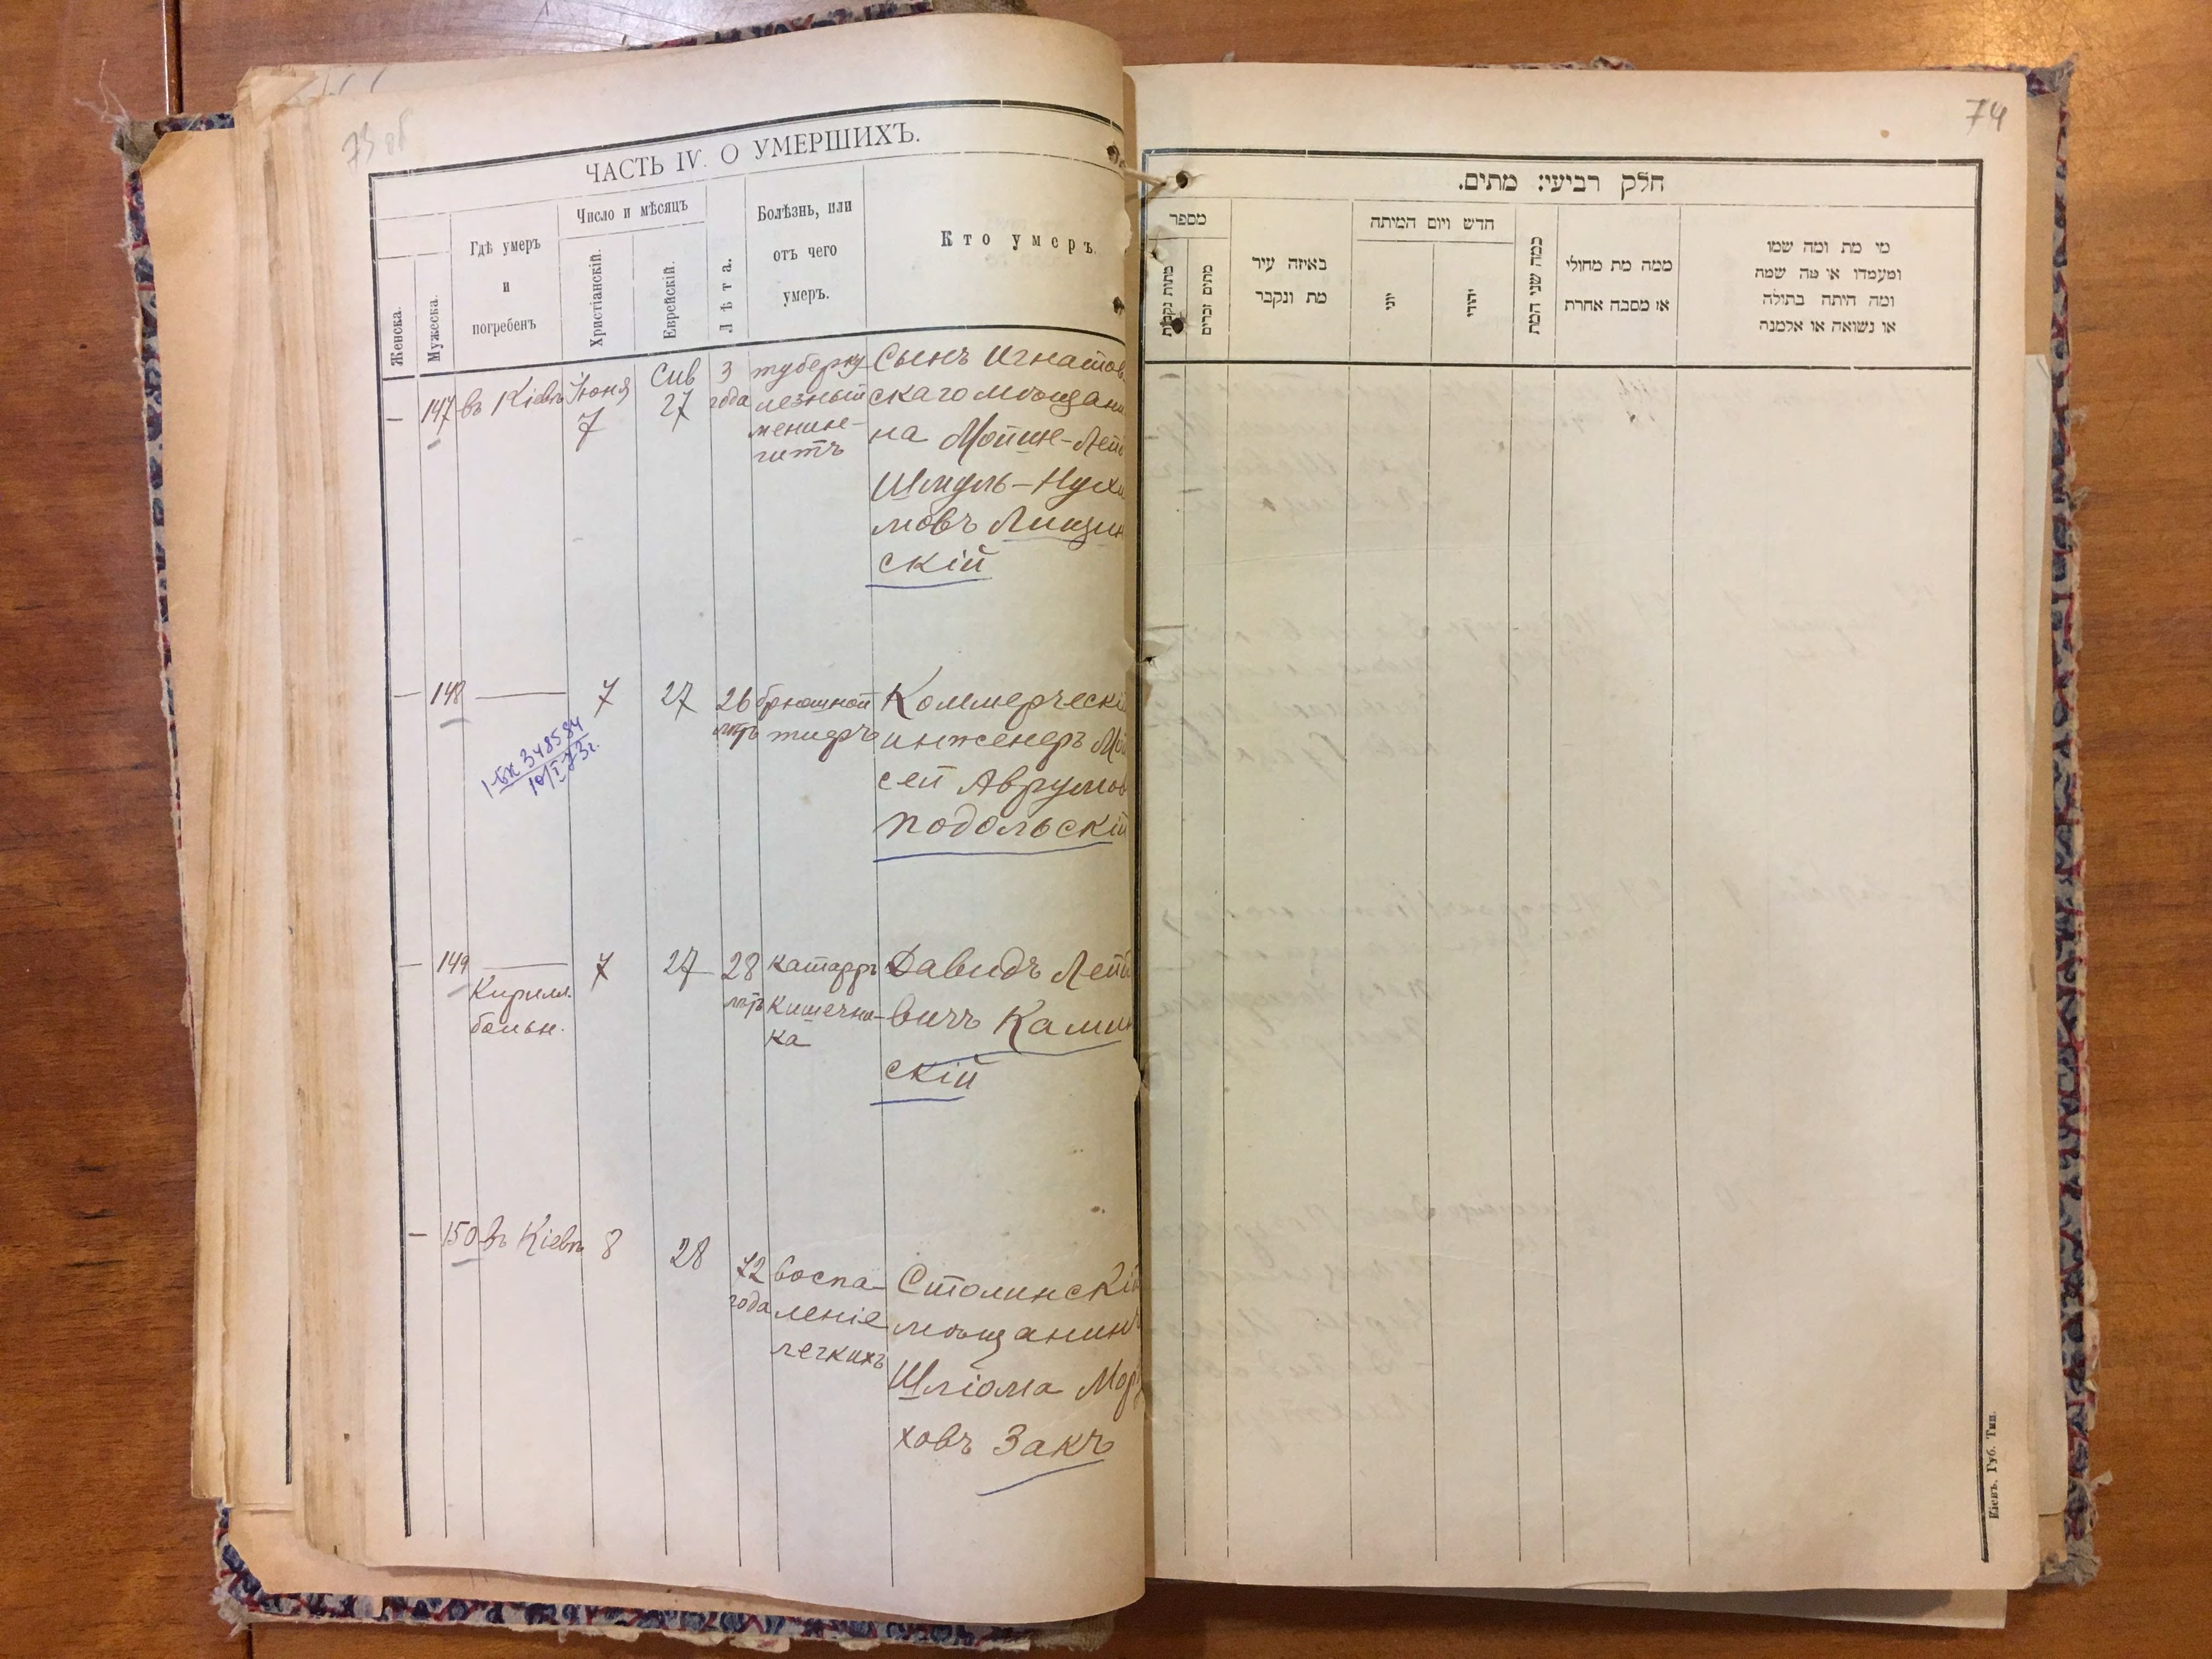 73 об
ЧАСТЬ IV. О УМЕРШИХЪ.
Женска.
Мужеска.
Гдѣ умеръ
и
погребенъ
Число и мѣсяцъ
Христіанскій.
Еврейскій.
Лѣта.
Болѣзнь, или
отъ чего
умеръ.
Кто умеръ.
— 147 въ Кіевѣ Іюня 7 Сив 27 3 года
туберку
лезный
менин-
гитъ
Сынъ Игнатов
скаго мѣщани
на Мойше-Лейб
Шмуль-Нухи
мовъ Лищин
скій
— 148 — 7 27 26 лѣтъ
брюшной
тифъ
Коммерческій
инженеръ Мой
сей Аврумов
Подольскій
1-БК 348584
10/I-73г.
— 149 — 7 27 28 лѣтъ
Кирилл.
больн.
катарръ
кишечни-
ка
Давидъ Лейб
вичъ Камин
скій
— 150 въ Кіевѣ 8 28 72 года
воспа-
леніе
легкихъ
Столинскій
мѣщанинъ
Шліома Мор
ховъ Закъ
74
חלק רביעי: מתים.
מספר
מתות נקבות
מתים זכרים
באיזה עיר
מת ונקבר
חדש ויום המיתה
יוני
יהודי
כמה שני המת
ממה מת מחולי
או מסבה אחרת
מי מת ומה שמו
ומעמדו או מה שמה
ומה היתה בתולה
או נשואה או אלמנה
Кіевъ. Губ. Тип.